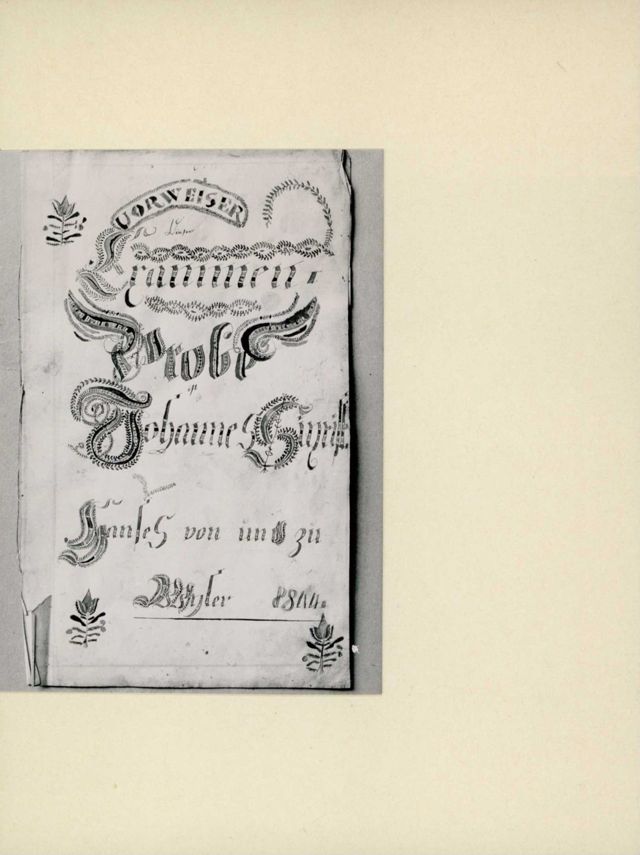 VORWEISER
Exammen=
Probe
Johannes
Hanses von und zu
Wyler 1844.